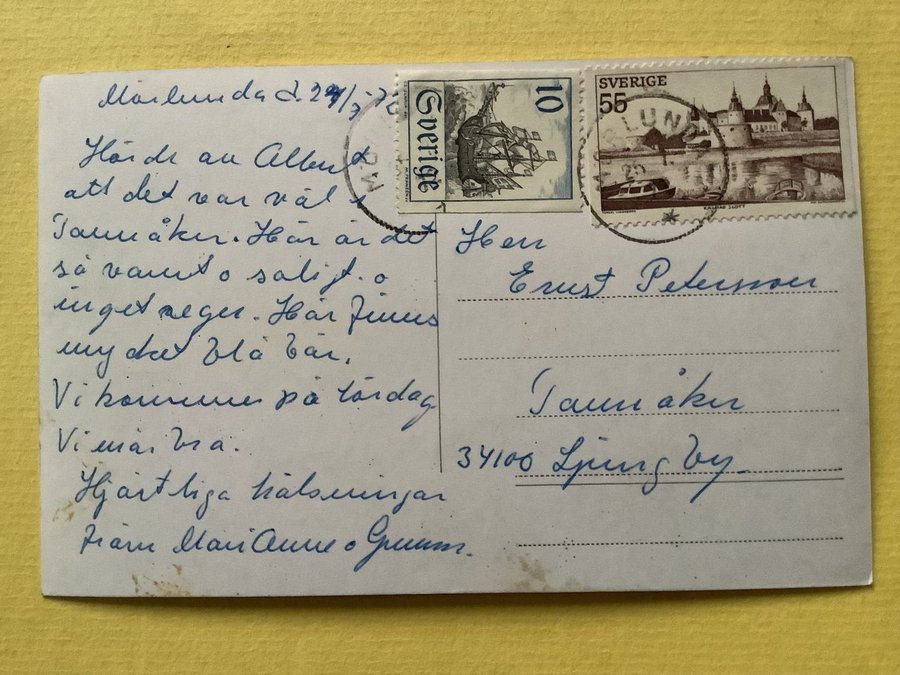 Mörlunda d. 24/7-70
Hörde av Albert
att det var väl i
Tannåker. Här är det
så varmt o soligt. o
inget regn. Här finns
mycket blå bär.
Vi kommer på lördag
Vi mår bra.
Hjärtliga hälsningar
från MariAnne o Gunnar.
Sverige
10
SVERIGE
55
KALMAR SLOTT
MÖRLUNDA
Herr
Ernst Petersson
Tannåker
34100 Ljungby